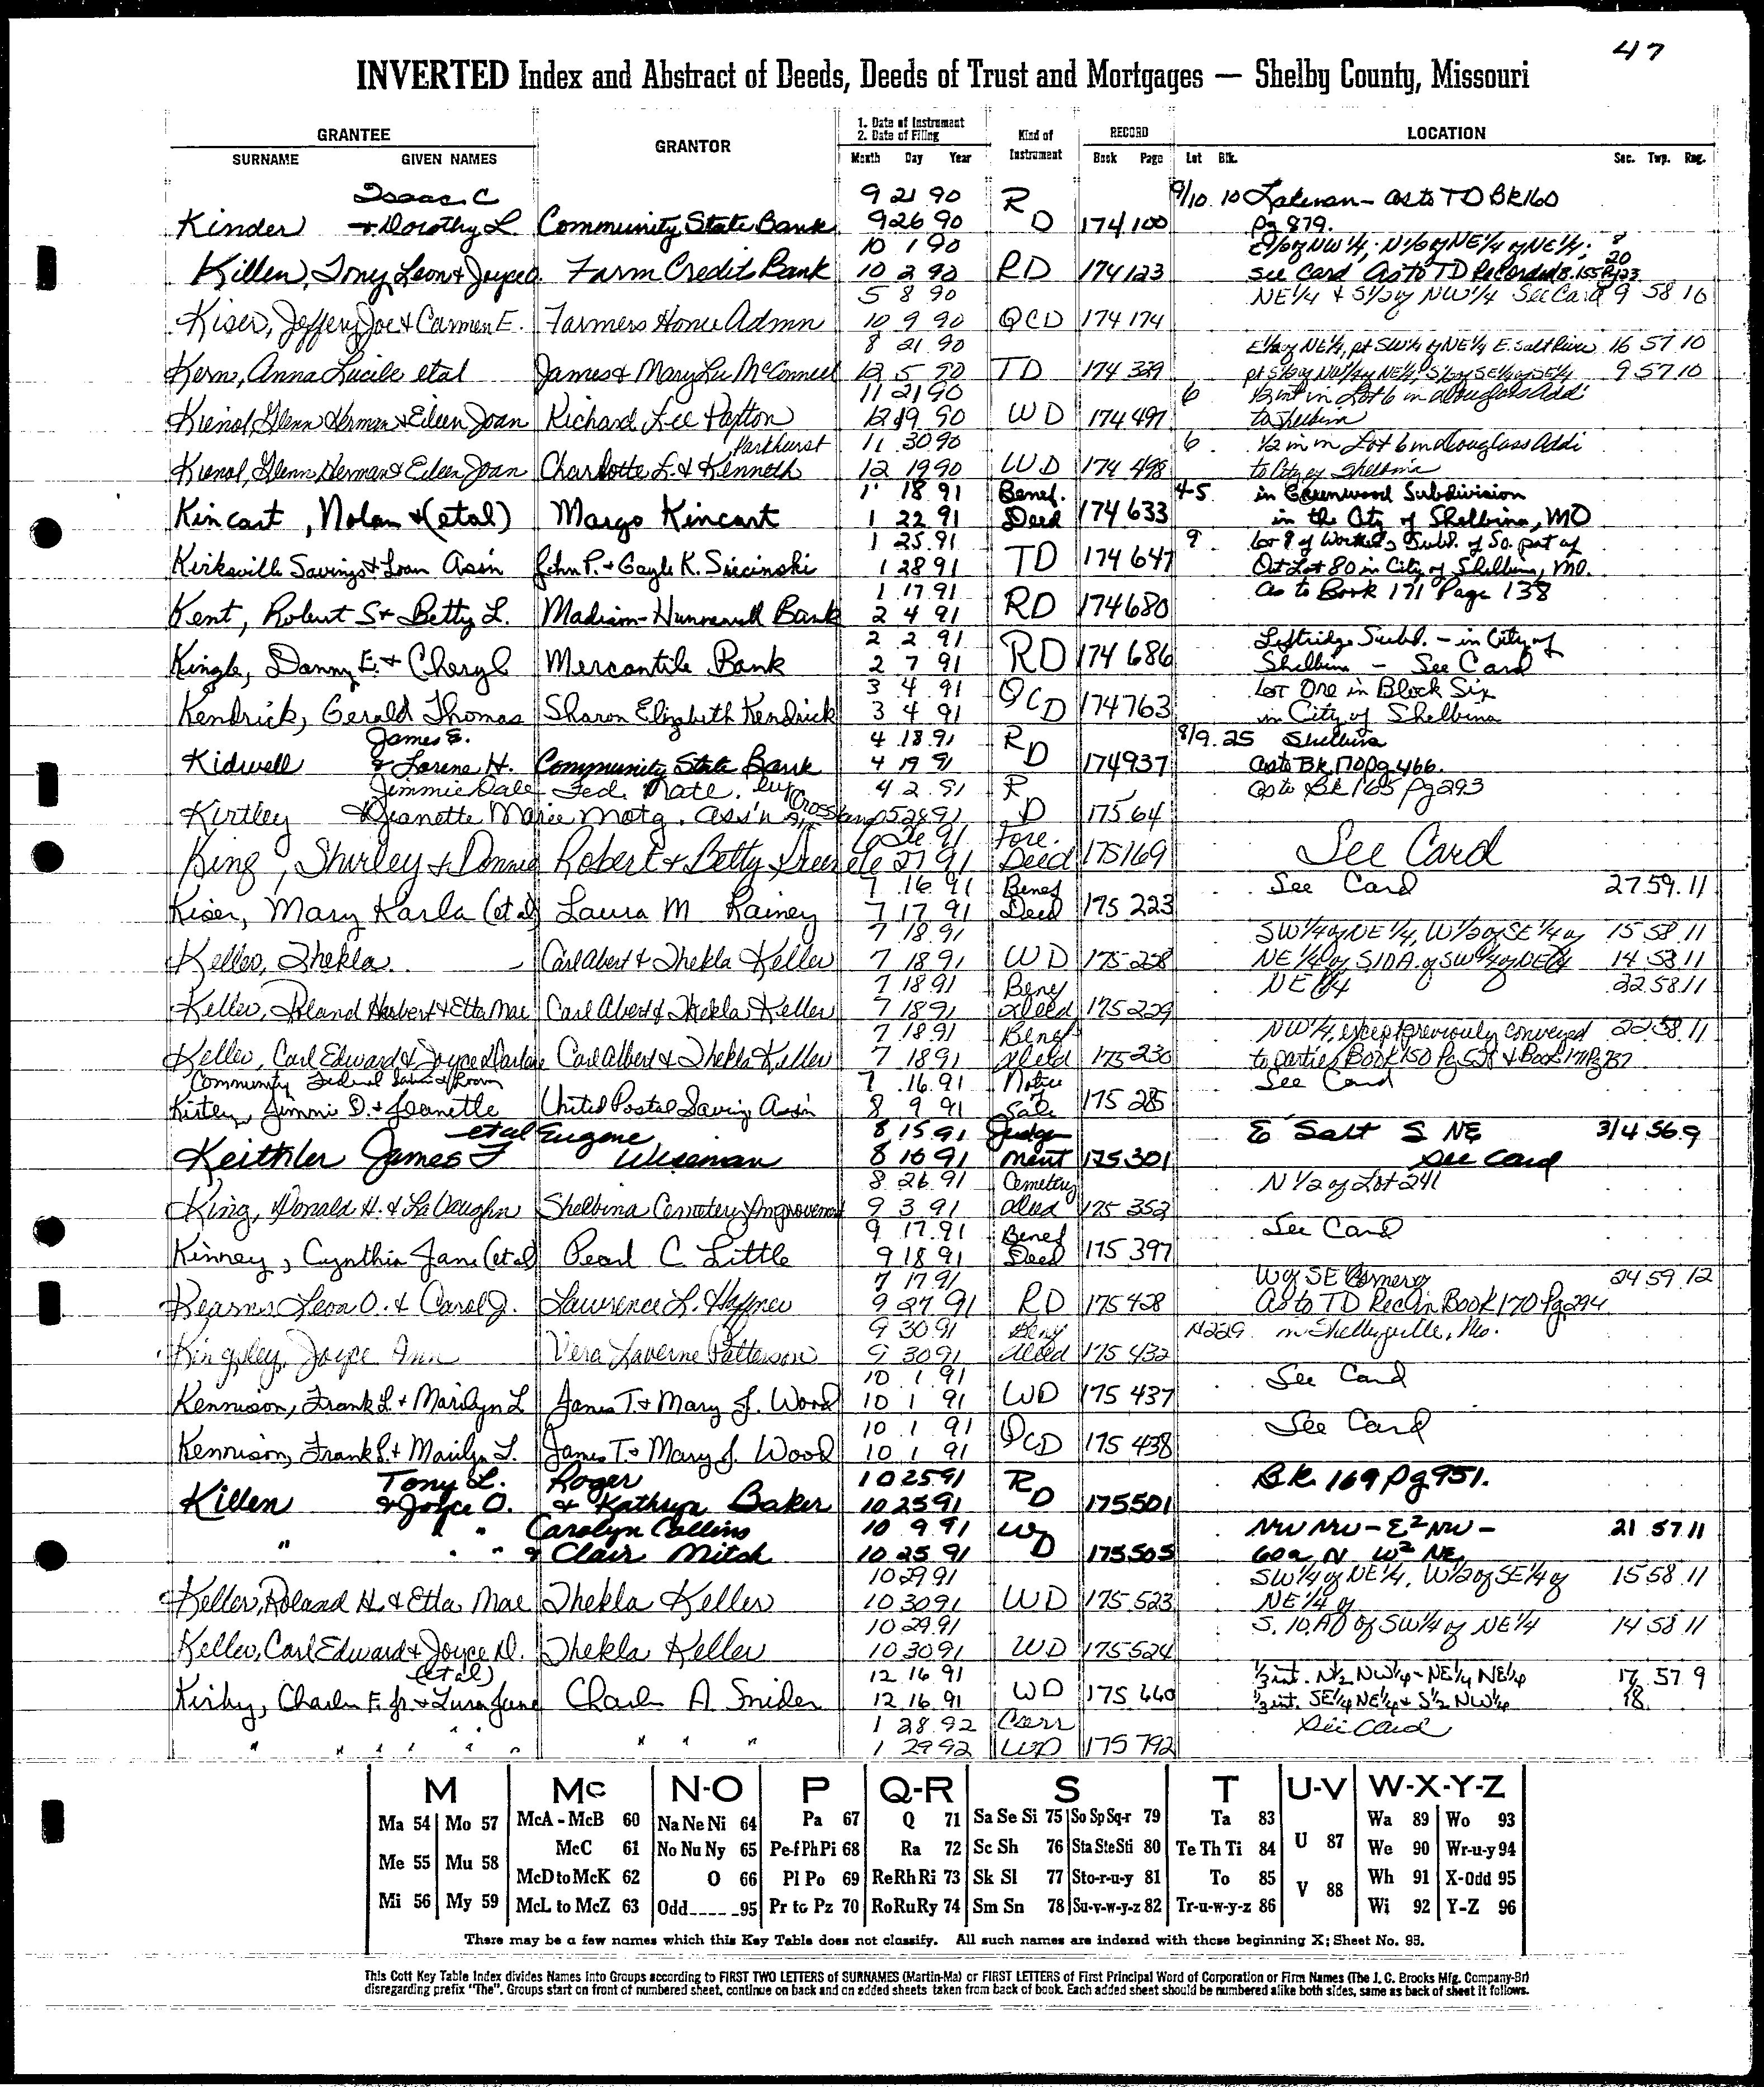 47
INVERTED Index and Abstract of Deeds, Deeds of Trust and Mortgages — Shelby County, Missouri
GRANTEE GRANTOR 1. Date of Instrument 2. Date of Filing Kind of Instrument RECORD LOCATION
SURNAME GIVEN NAMES Month Day Year Book Page Lot Blk. Sec. Twp. Rng.
Isaac C 9 21 90 R 9/10 10 Lakenan - as to TD Bk 160
Kinder + Dorothy L Community State Bank 9 26 90 D 174 100 pg 879.
10 1 90 E½ of NW¼; N½ of NE¼ of NE¼; 8
Killen, Tony Leon & Joyce O. Farm Credit Bank 10 2 90 RD 174 123 See Card As to TD Recorded B. 155 Pg 23 20
5 8 90 NE¼ & S½ of NW¼ See Card 9 58 10
Kiser, Jeffery Joe & Carmen E. Farmers Home Admn 10 9 90 QCD 174 174
8 21 90 E½ of NE¼, pt SW¼ of NE¼ E. Salt River 16 57 10
Kern, Anna Lucile etal James & Mary Lu McConnell 12 5 90 TD 174 329 pt S½ of NW¼ of NE¼, S½ of SE¼ of SE¼ 9 57 10
11 21 90 6 ½ int in Lot 6 in Douglass Add
Glenn Herman & Eileen Joan Richard Lee Paxton 12 19 90 WD 174 497 to Shelbina
Parkhurst 11 30 90 6 ½ in in Lot 6 in Douglass Addi
Glenn Herman & Eileen Joan Charlotte L. & Kenneth 12 19 90 WD 174 498 to City of Shelbina
1 18 91 Benef. 45 in Greenwood Subdivision
Kincart, Nolan & (etal) Margo Kincart 1 22 91 Deed 174 633 in the City of Shelbina, MO
1 25 91 9 Lot 9 of Subd. of So. part of
Kirksville Savings & Loan Ass'n John P. & Gayle K. Siecinski 1 28 91 TD 174 647 Out Lot 80 in City of Shelbina, Mo.
1 17 91 As to Book 171 Page 138
Kent, Robert S & Betty L. Madison-Hunnewell Bank 2 4 91 RD 174 680
2 2 91 Leftridge Subd. - in City of
Danny E. & Cheryl Mercantile Bank 2 7 91 RD 174 686 Shelbina - See Card
3 4 91 Lot One in Block Six
Kendrick, Gerald Thomas Sharon Elizabeth Kendrick 3 4 91 QCD 174 763 in City of Shelbina
James E. 4 18 91 R 8/9 25 Shelbina
Kidwell & Lorene H. Community State Bank 4 19 91 D 174 937 as to Bk 170 pg 466.
Jimmie Dale Fed. Natl. 4 2 91 R as to Bk 165 pg 293
Kirtley & Jeanette Marie Motg. Ass'n 5 28 91 D 175 64
6 26 91 Fore.
King, Shirley & Donnie Robert & Betty 6 27 91 Deed 175 169 See Card
7 16 91 Benef See Card 27 59 11
Kiser, Mary Karla (etal) Laura M Rainey 7 17 91 Deed 175 223
7 18 91 SW¼ of NE¼, W½ of SE¼ of 15 58 11
Keller, Thekla Carl Abert & Thekla Keller 7 18 91 WD 175 228 NE¼ of S10A. of SW¼ of NE¼ 14 58 11
7 18 91 Benef NE¼ 22 58 11
Keller, Roland Herbert & Etta Mae Carl Abert & Thekla Keller 7 18 91 Deed 175 229
7 18 91 Benef NW¼, except previously conveyed 22 58 11
Keller, Carl Edward & Joyce Darlene Carl Albert & Thekla Keller 7 18 91 Deed 175 230 to parties Book 150 Pg & Book 171 Pg
Community Federal Savings & Loan 7 16 91 Notice See Card
Jimmi D. & Jeanette United Postal Saving Ass'n 8 9 91 Sale 175 285
etal Eugene 8 15 91 Judge- E Salt S NE 3/4 56 9
Keithler James F Wiseman 8 16 91 ment 175 301 See Card
8 26 91 Cemetery N½ of Lot 241
King, Donald H. & LaVaughn Shelbina Cemetery Improvement 9 3 91 Deed 175 352
9 17 91 Benef See Card
Kinney, Cynthia Jane (etal) Pearl C. Little 9 18 91 Deed 175 397
7 17 91 W of SE Corner of 24 59 12
Kearns Leon O. & Carol J. Lawrence L. Haffner 9 27 91 RD 175 428 As to TD Rec in Book 170 Pg 294
9 30 91 Benf N229 in Shelbyville, Mo.
Kingsley, Joyce Ann Vera Laverne Patterson 9 30 91 Deed 175 432
10 1 91 See Card
Kennison, Frank L. & Marilyn L James T. & Mary J. Wood 10 1 91 WD 175 437
10 1 91 See Card
Kennison, Frank L. & Marilyn L. James T. & Mary J. Wood 10 1 91 QCD 175 438
Tony L. Roger 10 25 91 R Bk. 169 pg 951.
Killen & Joyce O. & Kathryn Baker 10 25 91 D 175 501
Carolyn Collins 10 9 91 W NW NW - E² NW - 21 57 11
" " " & Clair Mitch 10 25 91 D 175 505 60a N W² NE
10 29 91 SW¼ of NE¼, W½ of SE¼ of 15 58 11
Keller, Roland H. & Etta Mae Thekla Keller 10 30 91 WD 175 523 NE¼ of
10 29 91 S. 10 A of SW¼ of NE¼ 14 58 11
Keller, Carl Edward & Joyce D. Thekla Keller 10 30 91 WD 175 524
(etal) 12 16 91 ⅓ int. N½ NW¼ - NE¼ NE¼ 17 57 9
Kirby, Charles F. Jr. & Lura Jane Charles A. Snider 12 16 91 WD 175 660 ⅓ int. SE¼ NE¼ & S½ NW¼ 18
1 28 92 Corr See Card
" " " " " " " " " 1 29 92 WD 175 792
M Mc N-O P Q-R S T U-V W-X-Y-Z
Ma 54 Mo 57 McA - McB 60 Na Ne Ni 64 Pa 67 Q 71 Sa Se Si 75 So Sp Sq-r 79 Ta 83 U 87 Wa 89 Wo 93
Me 55 Mu 58 McC 61 No Nu Ny 65 Pe-f Ph Pi 68 Ra 72 Sc Sh 76 Sta Ste Sti 80 Te Th Ti 84 We 90 Wr-u-y 94
McD to McK 62 O 66 Pl Po 69 Re Rh Ri 73 Sk Sl 77 Sto-r-u-y 81 To 85 V 88 Wh 91 X-Odd 95
Mi 56 My 59 McL to McZ 63 Odd-----95 Pr to Pz 70 Ro Ru Ry 74 Sm Sn 78 Su-v-w-y-z 82 Tr-u-w-y-z 86 Wi 92 Y-Z 96
There may be a few names which this Key Table does not classify. All such names are indexed with those beginning X; Sheet No. 95.
This Cott Key Table Index divides Names into Groups according to FIRST TWO LETTERS of SURNAMES (Martin-Ma) or FIRST LETTERS of First Principal Word of Corporation or Firm Names (The J. C. Brooks Mfg. Company-Br)
disregarding prefix "The". Groups start on front of numbered sheet, continue on back and on added sheets taken from back of book. Each added sheet should be numbered alike both sides, same as back of sheet it follows.